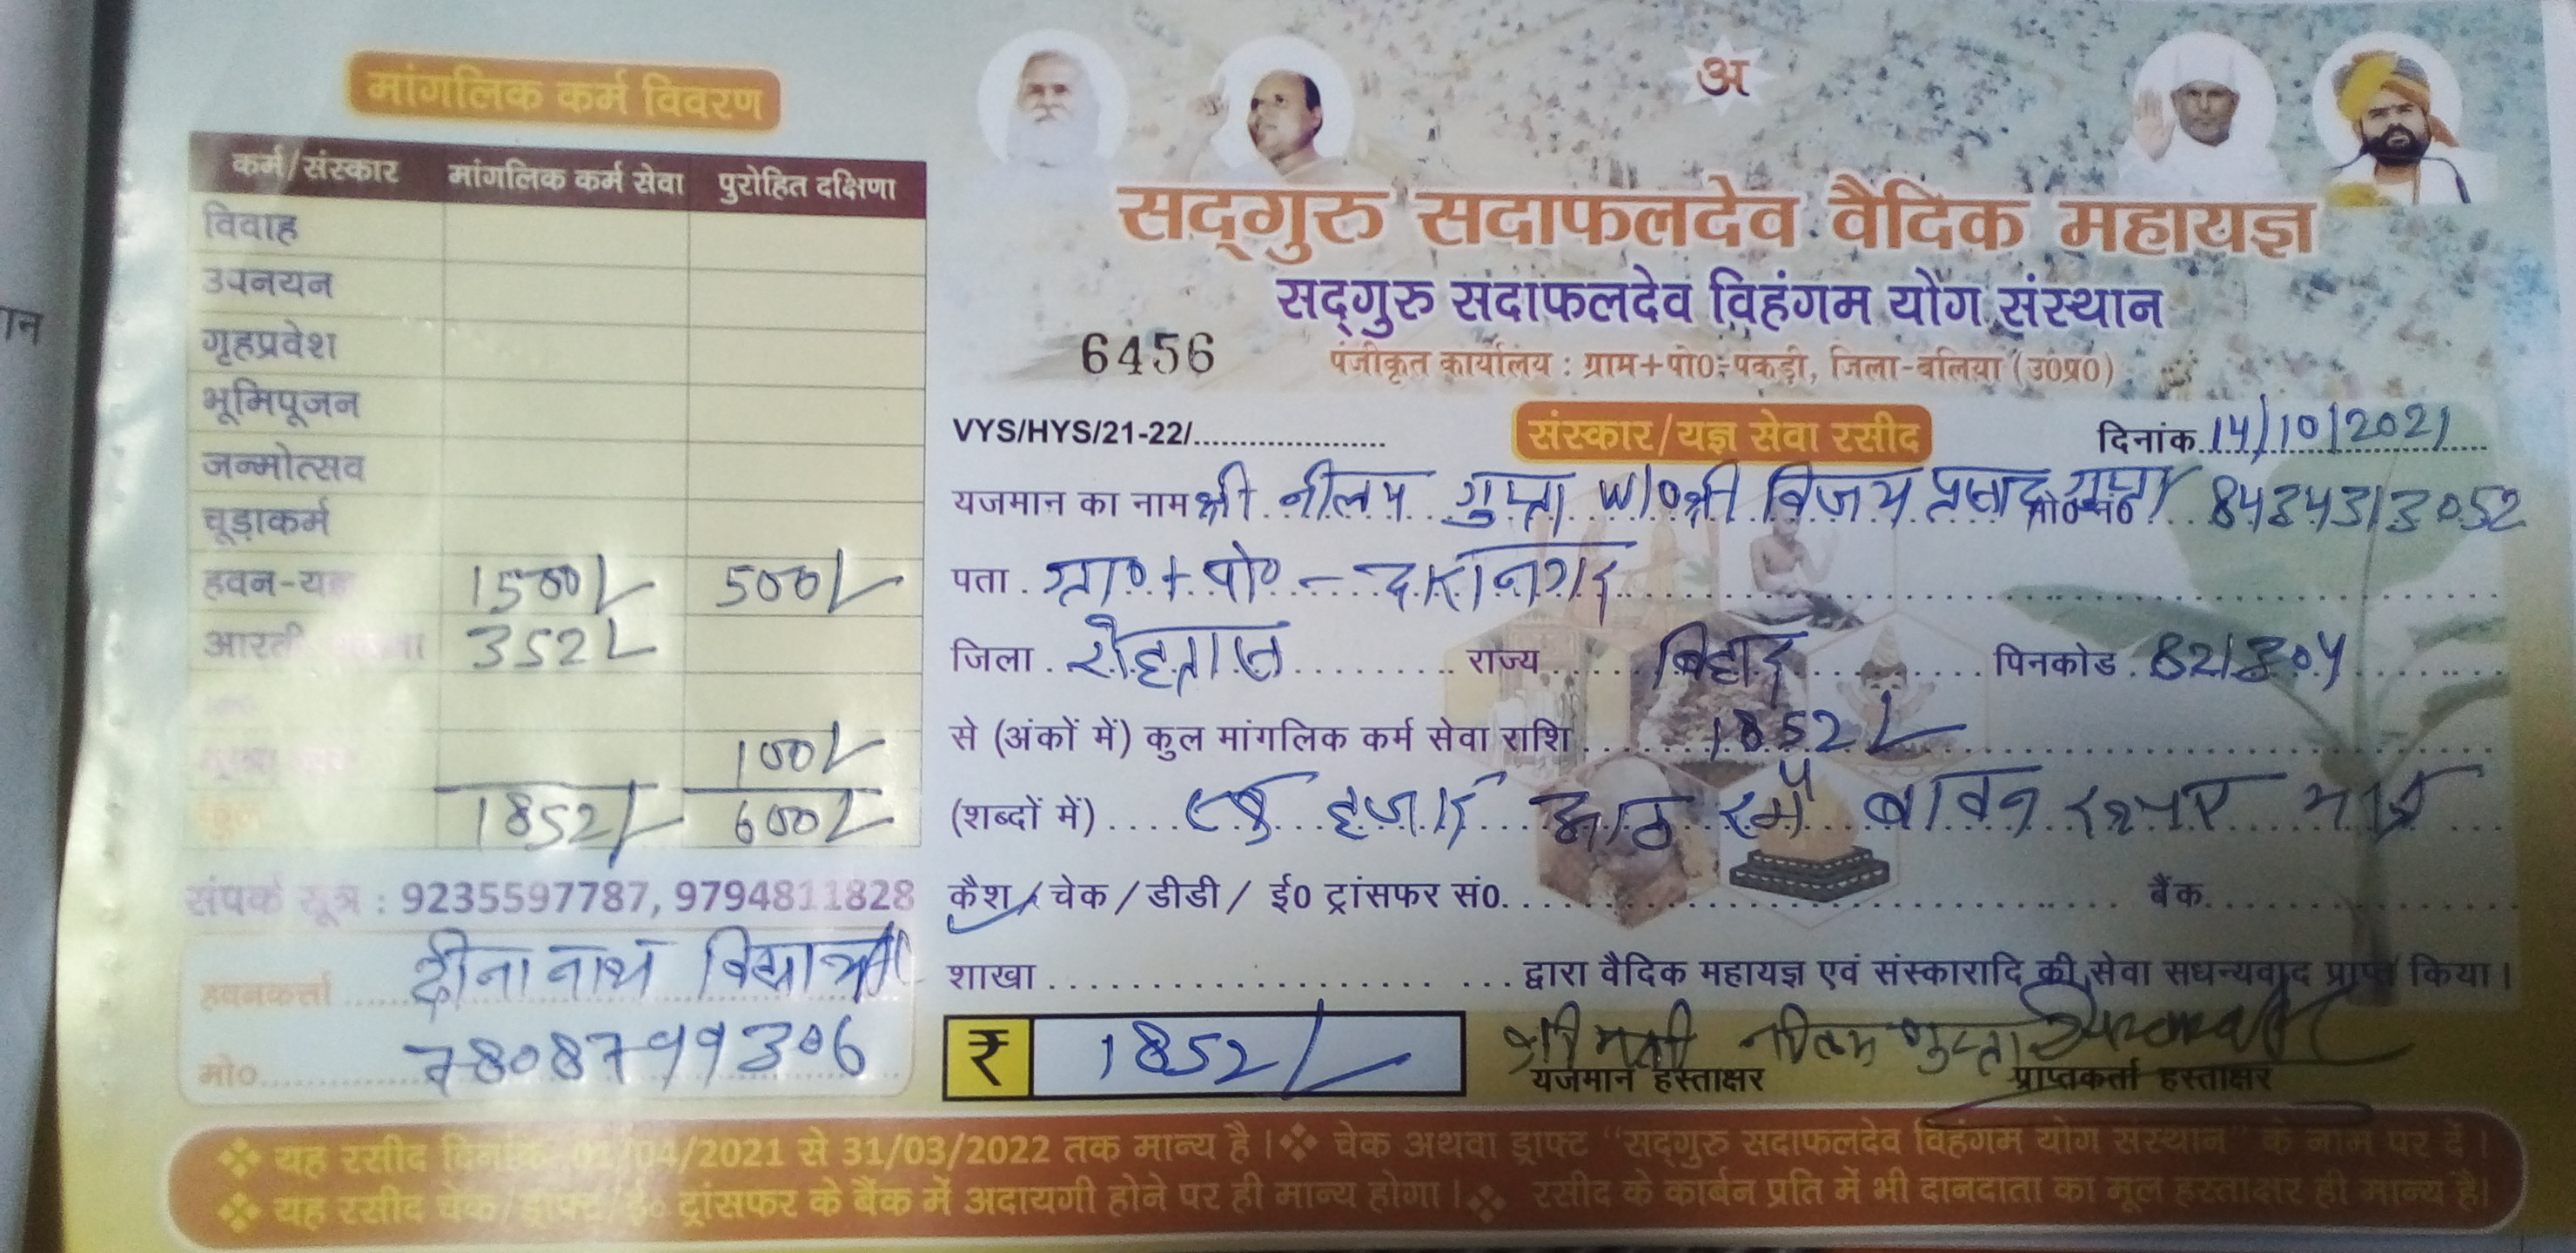 मांगलिक कर्म विवरण
कर्म/संस्कार मांगलिक कर्म सेवा पुरोहित दक्षिणा
विवाह
उपनयन
गृहप्रवेश
भूमिपूजन
जन्मोत्सव
चूड़ाकर्म
हवन-यज्ञ 1500/- 500/-
आरती 352/-
100/-
कुल 1852/- 600/-
संपर्क सूत्र : 9235597787, 9794811828
हवनकर्त्ता दीनानाथ विद्यार्थी
मो० 7808799306
अ
सद्गुरु सदाफलदेव वैदिक महायज्ञ
सद्गुरु सदाफलदेव विहंगम योग संस्थान
6456 पंजीकृत कार्यालय : ग्राम+पो०-पकड़ी, जिला-बलिया (उ०प्र०)
VYS/HYS/21-22/ संस्कार/यज्ञ सेवा रसीद दिनांक 14/10/2021
यजमान का नाम श्री नीलम गुप्ता w/o श्री विजय प्रसाद गुप्ता मो०सं० 8434313052
पता ग्रा०+पो० -
जिला रोहतास राज्य बिहार पिनकोड 821304
से (अंकों में) कुल मांगलिक कर्म सेवा राशि 1852/-
(शब्दों में) एक हजार आठ सौ बावन रुपए मात्र
कैश / चेक / डीडी / ई० ट्रांसफर सं० बैंक
शाखा द्वारा वैदिक महायज्ञ एवं संस्कारादि की सेवा सधन्यवाद प्राप्त किया।
₹ 1852/- श्रीमती नीलम गुप्ता
यजमान हस्ताक्षर प्राप्तकर्ता हस्ताक्षर
❖ यह रसीद दिनांक 01/04/2021 से 31/03/2022 तक मान्य है। ❖ चेक अथवा ड्राफ्ट "सद्गुरु सदाफलदेव विहंगम योग संस्थान" के नाम पर दें।
❖ यह रसीद चेक/ड्राफ्ट/ई० ट्रांसफर के बैंक में अदायगी होने पर ही मान्य होगा। ❖ रसीद के कार्बन प्रति में भी दानदाता का मूल हस्ताक्षर ही मान्य है।